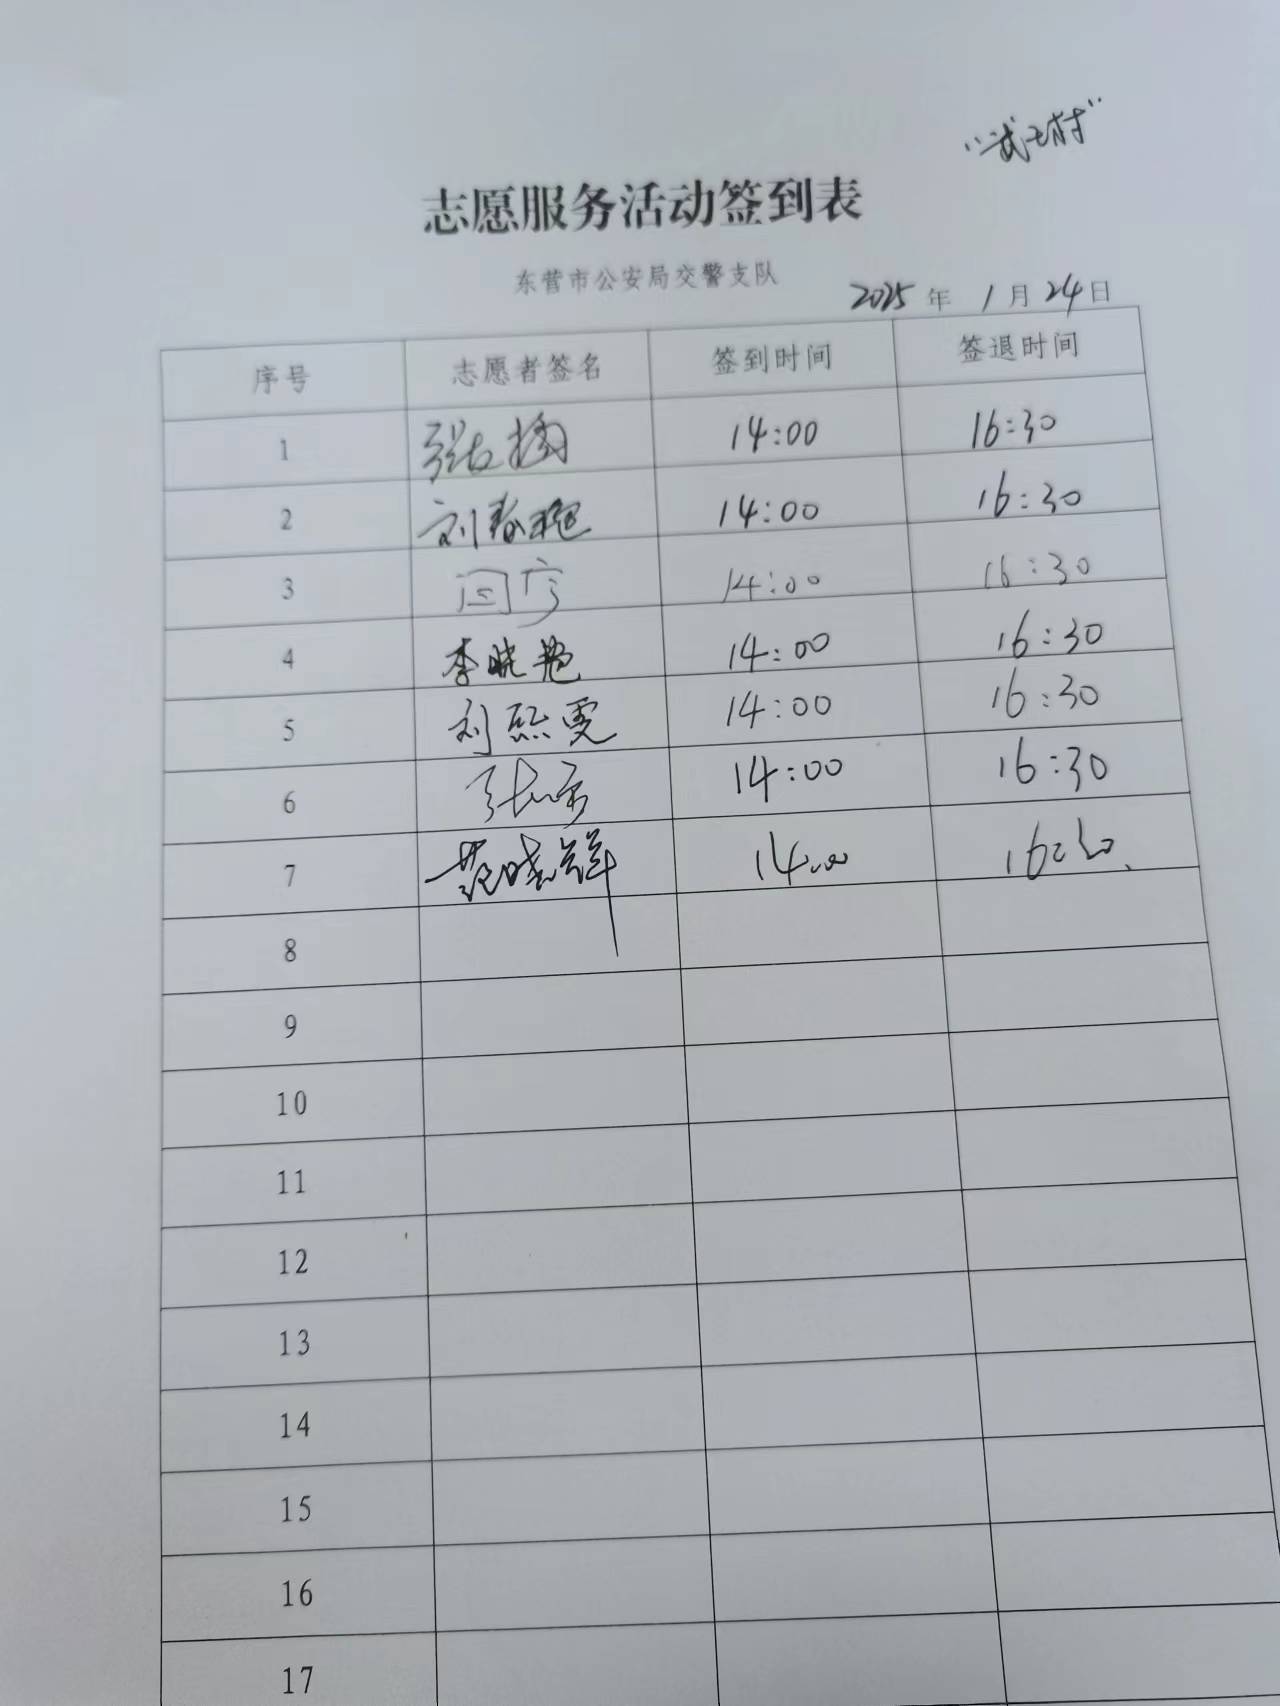 "武王村"
志愿服务活动签到表
东营市公安局交警支队
2025年1月24日
序号 志愿者签名 签到时间 签退时间
1 张 14:00 16:30
2 刘春艳 14:00 16:30
3 14:00 16:30
4 李晓艳 14:00 16:30
5 刘熙雯 14:00 16:30
6 张 14:00 16:30
7 范晓 14:00 16:30
8
9
10
11
12
13
14
15
16
17